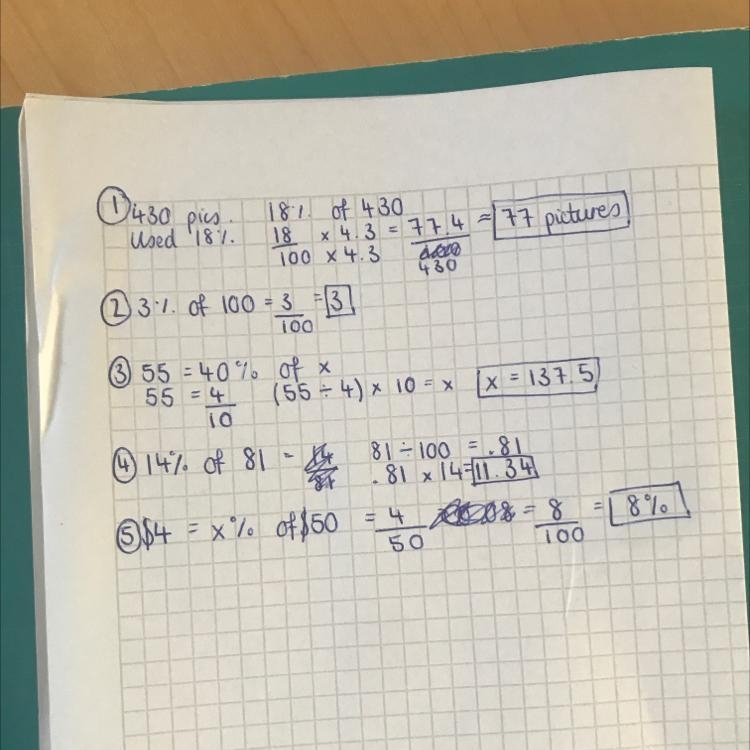 ① 430 pics. 18% of 430
Used 18%. 18/100 × 4.3 / × 4.3 = 77.4/430 ≈ 77 pictures
② 3% of 100 = 3/100 = 3
③ 55 = 40% of x
55 = 4/10 (55 ÷ 4) × 10 = x x = 137.5
④ 14% of 81 = 81 ÷ 100 = .81
.81 × 14 = 11.34
⑤ $4 = x% of $50 = 4/50 = 8/100 = 8%